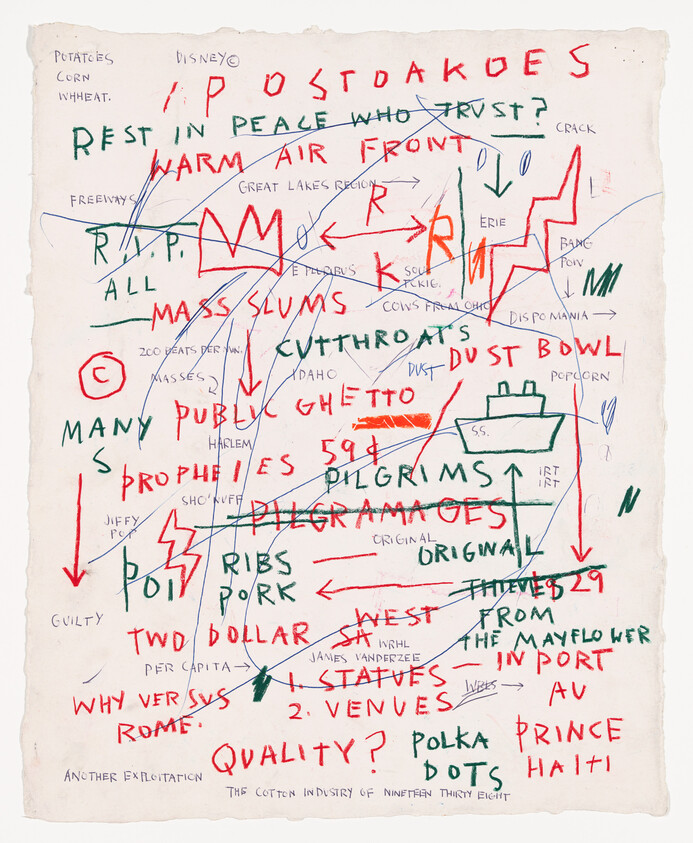 POTATOES
CORN
WHHEAT.
DISNEY©
POSTOAKOES
REST IN PEACE WHO TRUST?
CRACK
WARM AIR FRONT
GREAT LAKES REGION
FREEWAYS
R
R
ERIE
R.I.P.
ALL
E PLURIBUS
K
COWS FROM OHIO
BANG
POW
DISPOMANIA
MASS SLUMS
CUTTHROATS
200 BEATS PER MIN.
DUST
DUST BOWL
C
MASSES
IDAHO
POPCORN
PUBLIC GHETTO
MANY
S
HARLEM
S.S.
59¢
PROPHEIES
PILGRIMS
IRT
IRT
SHO'NUFF
PILGRAMAGES
JIFFY
POP
ORIGINAL
ORIGINAL
POI
RIBS
PORK
THIEVES
29
GUILTY
WEST
FROM
THE MAYFLOWER
TWO DOLLAR
SA
WRHL
JAMES VANDERZEE
PER CAPITA
1. STATUES — IN PORT
AU
PRINCE
HAITI
WBLS
2. VENUES
WHY VERSUS
ROME.
QUALITY?
POLKA
DOTS
ANOTHER EXPLOITATION
THE COTTON INDUSTRY OF NINETEEN THIRTY EIGHT